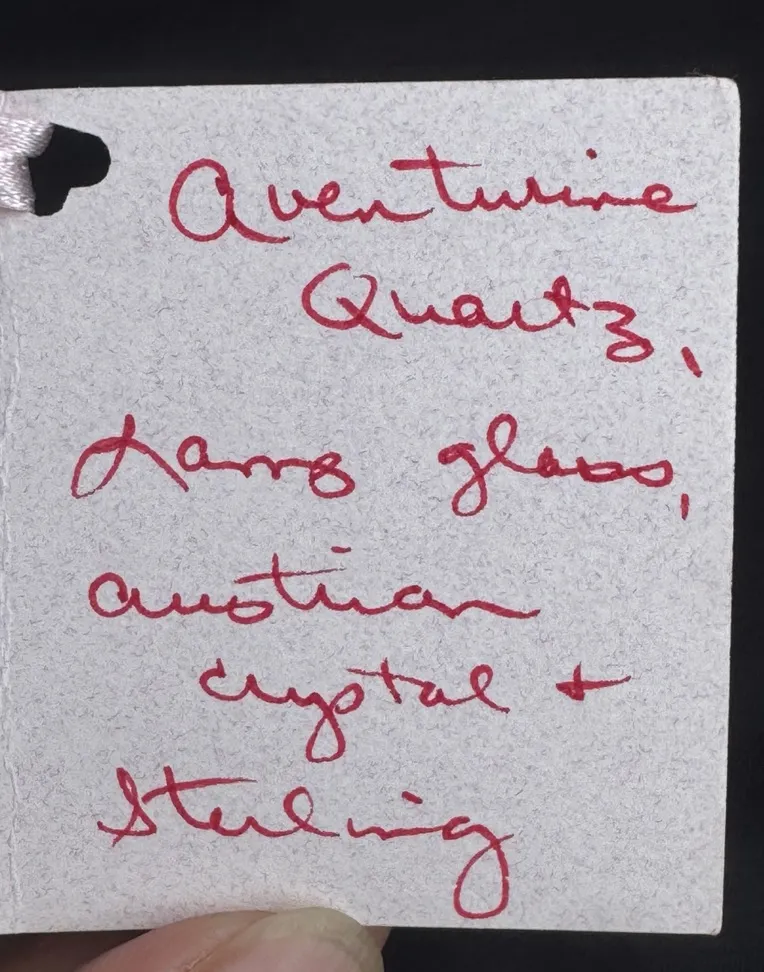 Aventurine
Quartz,
Lamp glass,
austrian
crystal +
Sterling